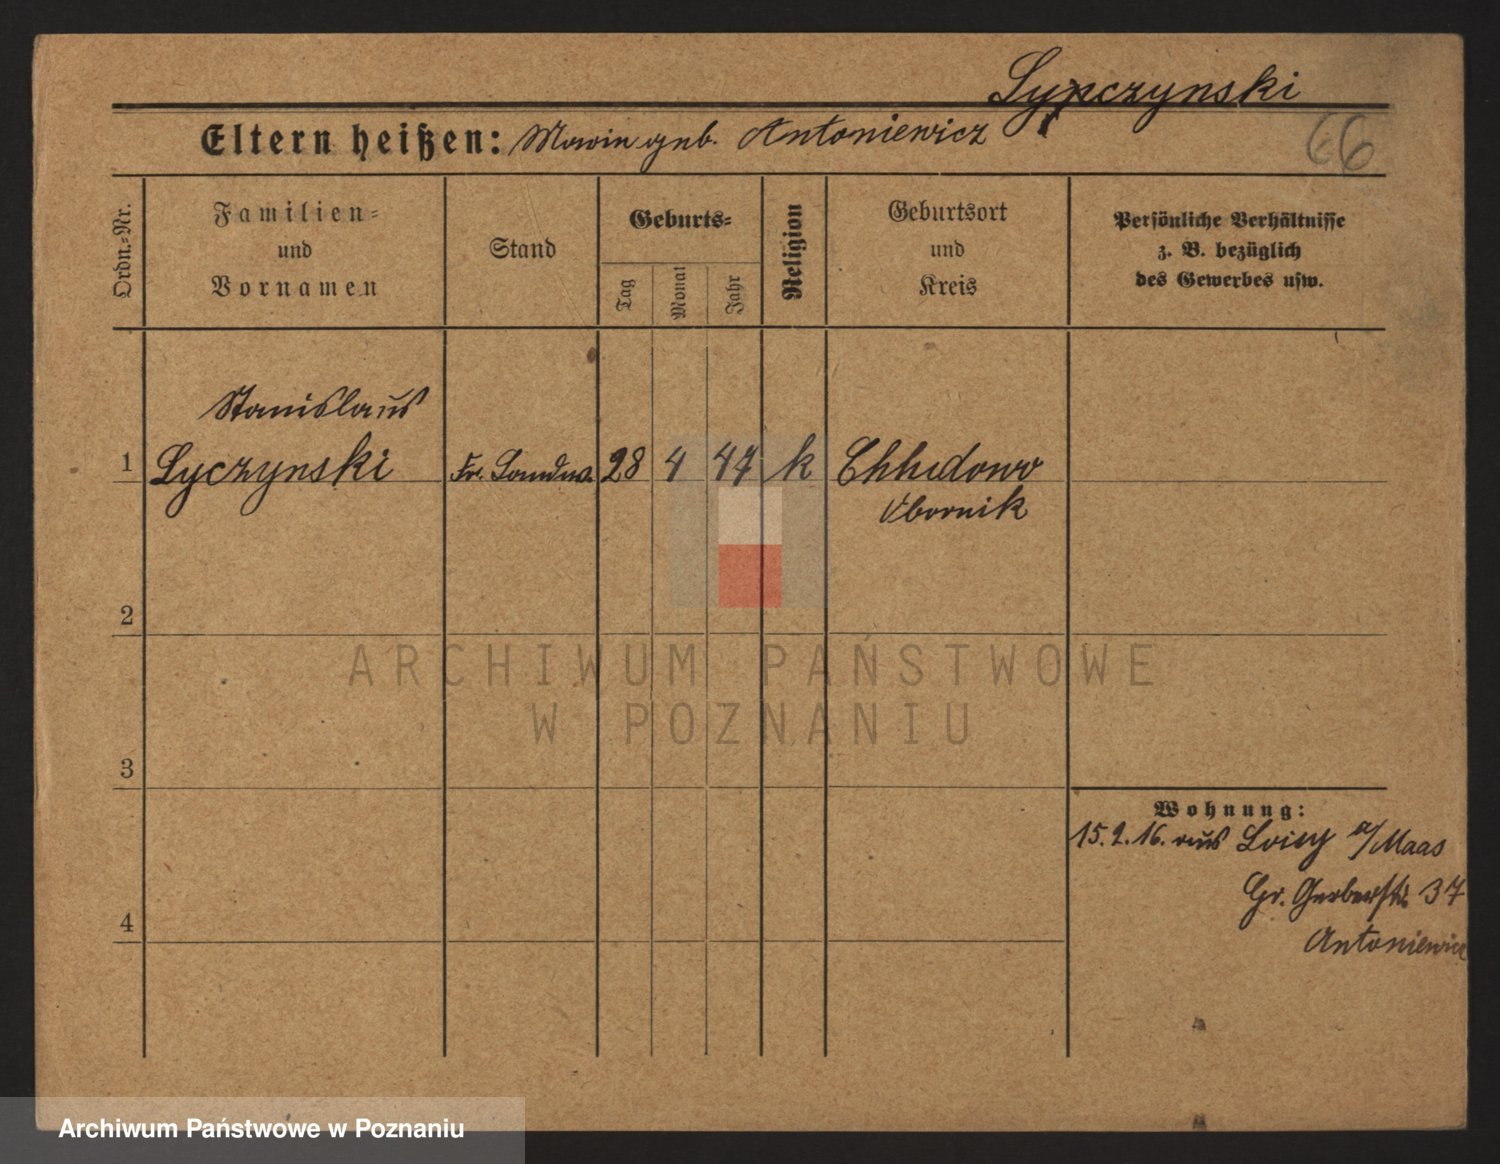 Sypczynski
Eltern heißen: geb. Antoniewicz
66
Ordn.=Nr.
Familien=
und
Vornamen
Stand
Geburts=
Tag
Monat
Jahr
Religion
Geburtsort
und
Kreis
Persönliche Verhältnisse
z. B. bezüglich
des Gewerbes usw.
Stanislaus
1 Syczynski 28 4 47 k
Obornik
2
3
4
Wohnung:
15.2.16. aus a/Maas
Gr. Gerberstr. 37
Antoniewicz
ARCHIWUM PAŃSTWOWE
W POZNANIU
Archiwum Państwowe w Poznaniu